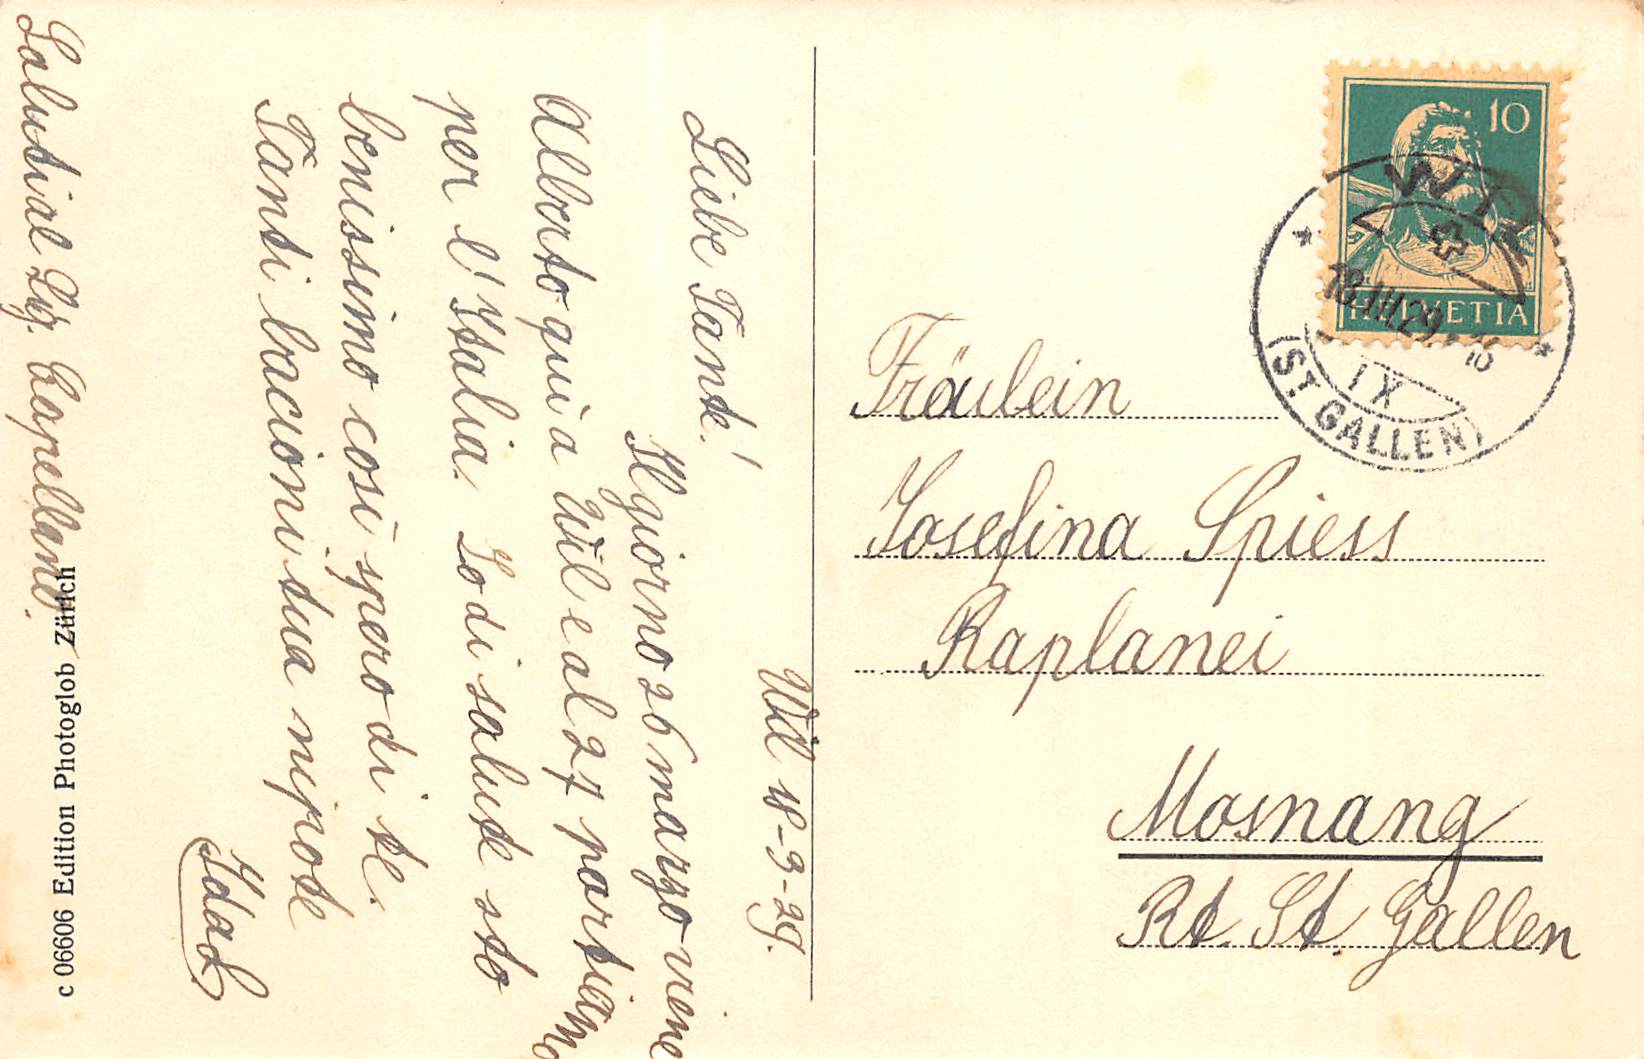 Wil 18-3-29.
Liebe Tante!
Il giorno 26 marzo viene
Alberto qui a Wil e al 27 partiamo
per l'Italia. Lodi salute sto
benissimo così spero di te.
Tanti bacioni tua nipote
Ida L.
Saluti al Sig. Capellano.
c 06606 Edition Photoglob Zürich
10
HELVETIA
WIL
18.III.29
IX
(ST. GALLEN)
Fräulein
Josefina Spiess
Kaplanei
Mosnang
Kt. St. Gallen